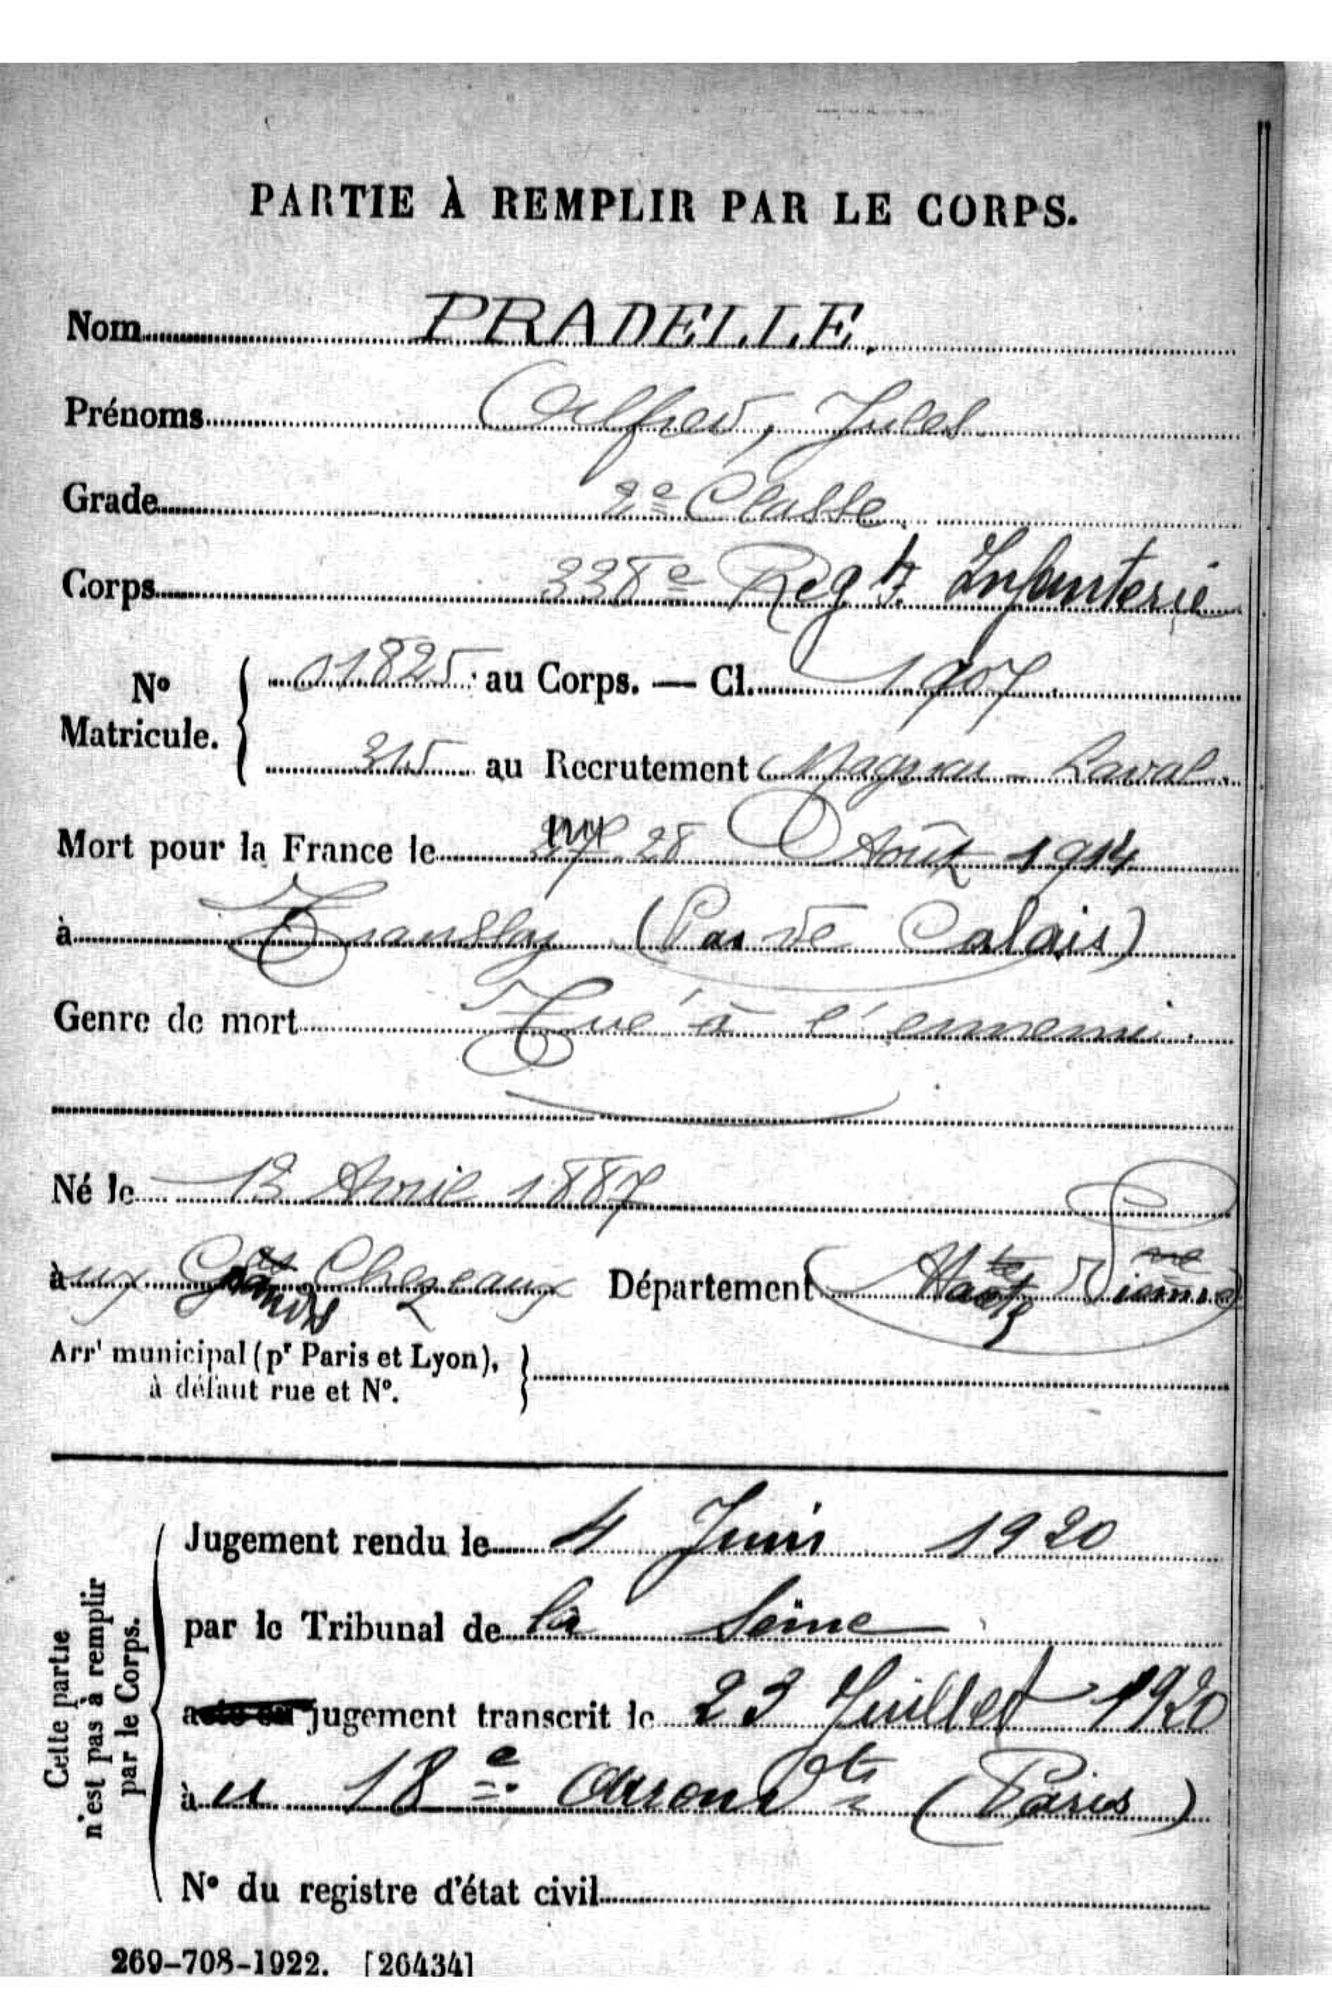 PARTIE À REMPLIR PAR LE CORPS.
Nom PRADELLE.
Prénoms Alfred, Jules
Grade 2e Classe
Corps 338e Regt Infanterie
No Matricule. 01825 au Corps. — Cl. 1907
315 au Recrutement Magnac-Laval
Mort pour la France le 28 Août 1914
à Transloy (Pas de Calais)
Genre de mort Tué à l'ennemi.
Né le 13 Avril 1887
aux Grands Chezeaux Département Hte Vienne
Arrt municipal (pr Paris et Lyon),
à défaut rue et No.
Cette partie
n'est pas à remplir
par le Corps.
Jugement rendu le 4 Juin 1920
par le Tribunal de la Seine
jugement transcrit le 23 Juillet 1920
au 18e arrondt (Paris)
No du registre d'état civil
269-708-1922. [26434]